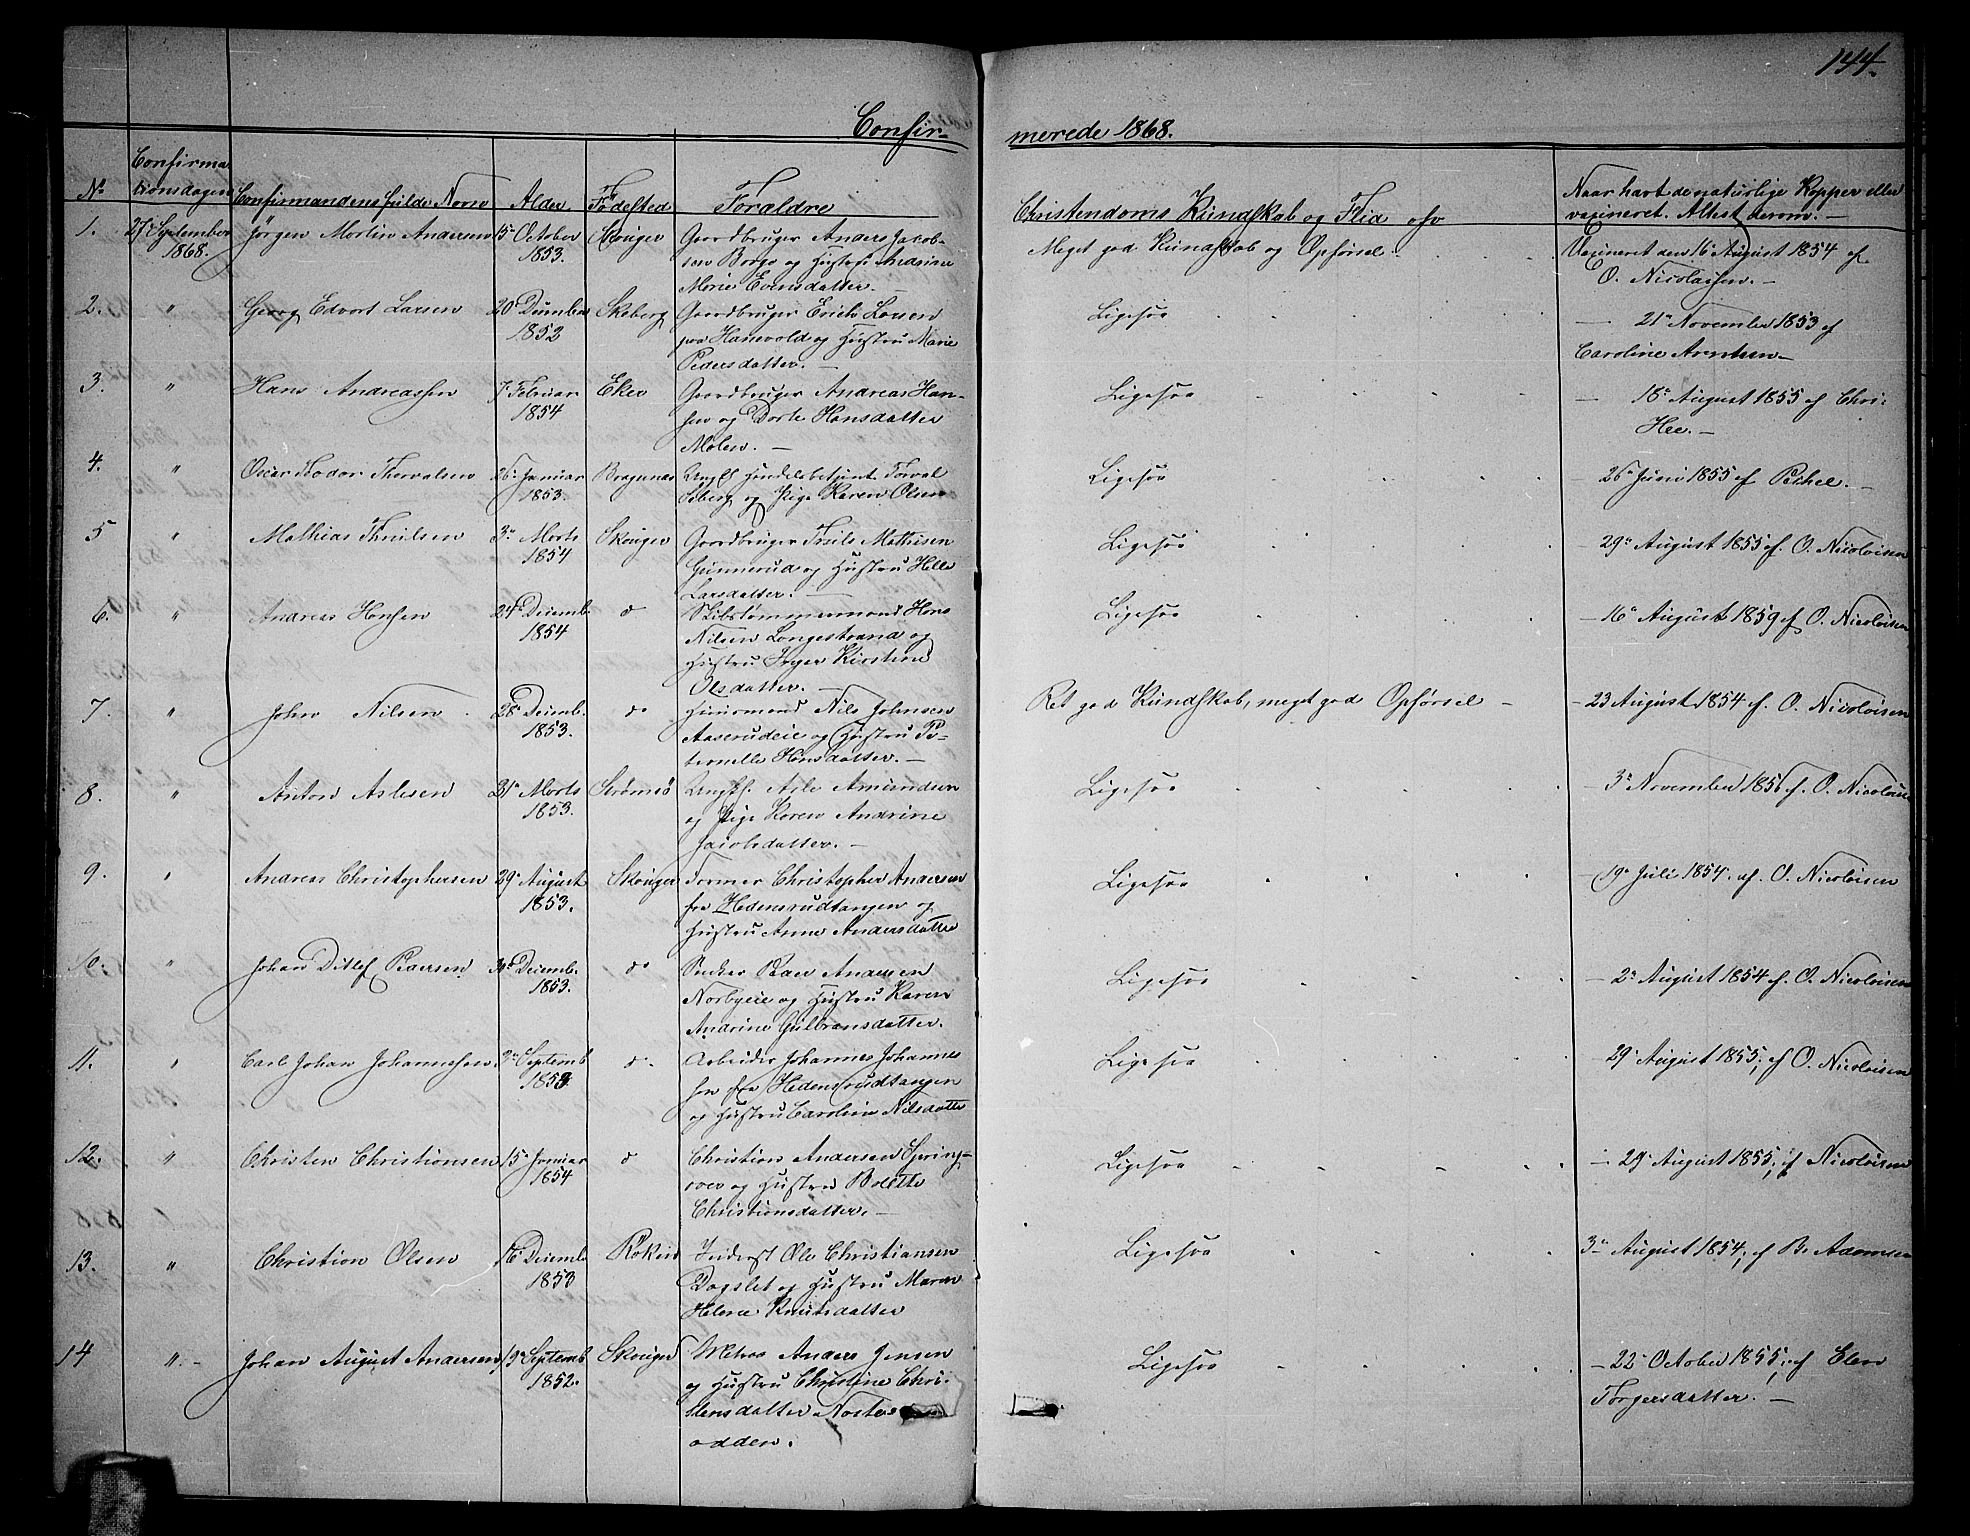 144.
Confir-
merede 1868.
No
Confirma
tionsdagen
Confirmandens fulde Navn
Alder
Fødested
Foraldre
Christendoms Kundskab og Flid osv
Naar havt de naturlige Kopper eller
vaxineret. Attest derom. —
1. 27 September Jörgen Martin Andersen 15 October Skouger Gaardbruger Anders Jacob- Meget god Kundskab og Opførsel Vaxineret den 16 August 1854 af
1868. 1853. sen Borge og Hustru Andrine O. Nicolaisen. —
Marie Evensdatter. —
2. " Georg Edvart Larsen 20 December Skeberg Gaardbruger Erich Larsen Ligesaa — 21 November 1853 af
1852 paa Hanevold og Hustru Marie Caroline Arntsen —
Pedersdatter. —
3. " Hans Andreassen 7 Februar Eker Gaardbruger Andreas Han- Ligesaa — 18 August 1855 af Chri-
1854 sen og Dorte Hansdatter Hee. —
Molen. —
4. " Oscar Theodor Thorvalsen 26 Januar Bragernæs Ungk. Handelsbetjent Torval Ligesaa — 26 Juni 1855 af
1853. og Pige Karen Olsen
5 " Mathias Thrulsen 3 Marts Skouger Gaardbruger Truls Mathisen Ligesaa 29 August 1855 af. O. Nicolaisen
1854 Gunnerud og Hustru Helle
Larsdatter. —
6. " Andreas Hansen 24 Decemb. do Skibstømmermand Hans Ligesaa — 16 August 1859 af O. Nicolaisen
1854 Nilsen Langestrand og
Hustru Inger Kirstine
Olsdatter. —
7. " Johan Nilsen 28 Decemb. do Huusmand Nils Johnsen Ret god Kundskab, meget god Opførsel — — 23 August 1854 af. O. Nicolaisen
1853. Aaserudeie og Hustru Pe-
ternelle Hansdatter. —
8. " Anton Aslesen 31 Marts Strømsö Ungk. Asle Amundsen Ligesaa — 3 November 1856 af. O. Nicolaisen
1853. og Pige Karen Andrine
Jacobsdatter. —
9. " Andreas Christophersen 29 August Skouger Former Christopher Andersen Ligesaa — 19 Juli 1854. af. O. Nicolaisen
1853. fra Hedensrudtangen og
Hustru Anne Andersdatter
10. " Johan Ditlef Paversen 30 Decemb. do Andersen Ligesaa — 2 August 1854 af. O. Nicolaisen
1853. Norbyeie og Hustru Karen
Andrine Gulbransdatter.
11. " Carl Johan Johannessen. 3 Septemb do Arbeider Johannes Johannes Ligesaa — 29 August 1855, af O. Nicolaisen
1853. sen fra Hedensrudtangen
og Hustru Caroline Nilsdatter
12. " Christen Christiansen 15 Januar do Christian Andersen Ligesaa — 29 August 1855, af Nicolaisen
1854 og Hustru Bolette
Christiansdatter. —
13. " Christian Olsen 16 Decemb Röken Inderst Ole Christiansen Ligesaa 3 August 1854, af Br Adamsen
1853 Dagslet og Hustru Maren
Helene Knutsdatter
14 " - Johan August Andersen 19 Septemb Skouger Matros Anders Jensen Ligesaa — 22 October 1855, af Elen
1852. og Hustru Christine Chri- Torgersdatter. —
stensdatter
odden.